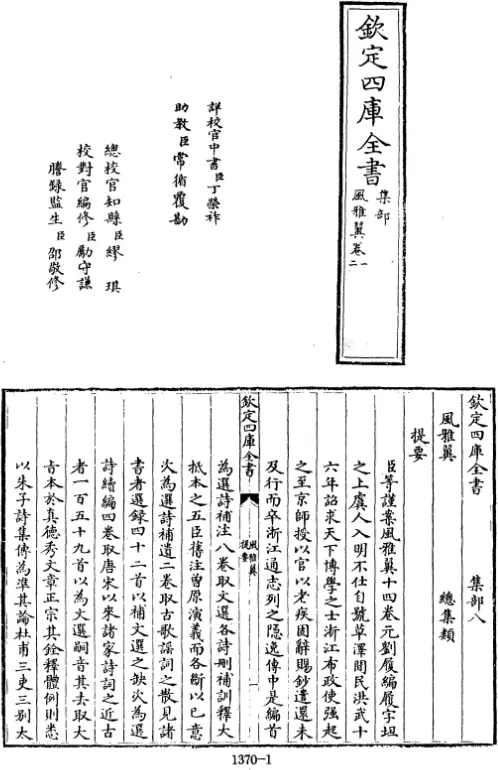 欽定四庫全書
集部
風雅翼卷一二
詳校官中書臣丁榮祚
助教臣常循覆勘
總校官知縣臣繆琪
校對官編修臣勵守謙
謄錄監生臣邵敬修
欽定四庫全書
集部八
風雅翼
總集類
提要
臣等謹案風雅翼十四卷元劉履編履字坦
之上虞人入明不仕自號草澤閒民洪武十
六年詔求天下博學之士浙江布政使強起
之至京師授以官以老疾固辭賜鈔遣還未
及行而卒浙江通志列之隱逸傳中是編首
欽定四庫全書
風雅翼
提要
一
為選詩補注八卷取文選各詩刪補訓釋大
抵本之五臣舊注曽原演義而各斷以已意
次為選詩補遺二卷取古歌謡詞之散見諸
書者選録四十二首以補文選之缺次為選
詩續編四卷取唐宋以來諸家詩詞之近古
者一百五十九首以為文選嗣音其去取大
㫖本於真德秀文章正宗其銓釋體例則悉
以朱子詩集傳為準其論杜甫三吏三别太
1370-1